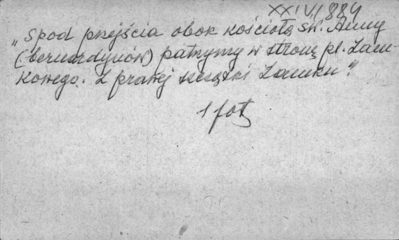 XXIV/884
„Spod przejścia obok kościoła św. Anny
(bernardynów) patrzymy w stronę pl. Zam-
kowego. Z prawej szczątki Zamku”.
1 fot.